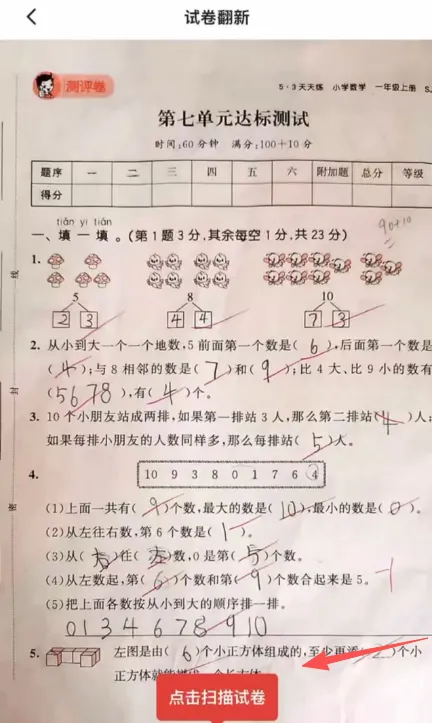 试卷翻新
测评卷
5·3天天练 小学数学 一年级上册 SJ
第七单元达标测试
时间:60分钟 满分:100+10分
题序 一 二 三 四 五 六 附加题 总分 等级
得分
90+10
tián yi tián
一、填一填。(第1题3分,其余每空1分,共23分)
1.
5 8 10
2 3 4 4 7 3
2. 从小到大一个一个地数,5前面第一个数是( 6 ),后面第一个数是
( 4 );与8相邻的数是( 7 )和( 9 );比4大、比9小的数有
(5678),有( 4 )个。
3. 10个小朋友站成两排,如果第一排站3人,那么第二排站( 4 )人;
如果每排小朋友的人数同样多,那么每排站( 5 )人。
4.
10 9 3 8 0 1 7 6 4
(1)上面一共有( 9 )个数,最大的数是( 10 ),最小的数是( 0 )。
(2)从左往右数,第6个数是( 1 )。
(3)从( 右 )往( 左 )数,0是第( 5 )个数。
(4)从左数起,第( 6 )个数和第( 9 )个数合起来是5。
-1
(5)把上面各数按从小到大的顺序排一排。
0 1 3 4 6 7 8 9 10
5. 左图是由( 6 )个小正方体组成的,至少再添( 2 )个小
正方体就能
点击扫描试卷
线
封
密